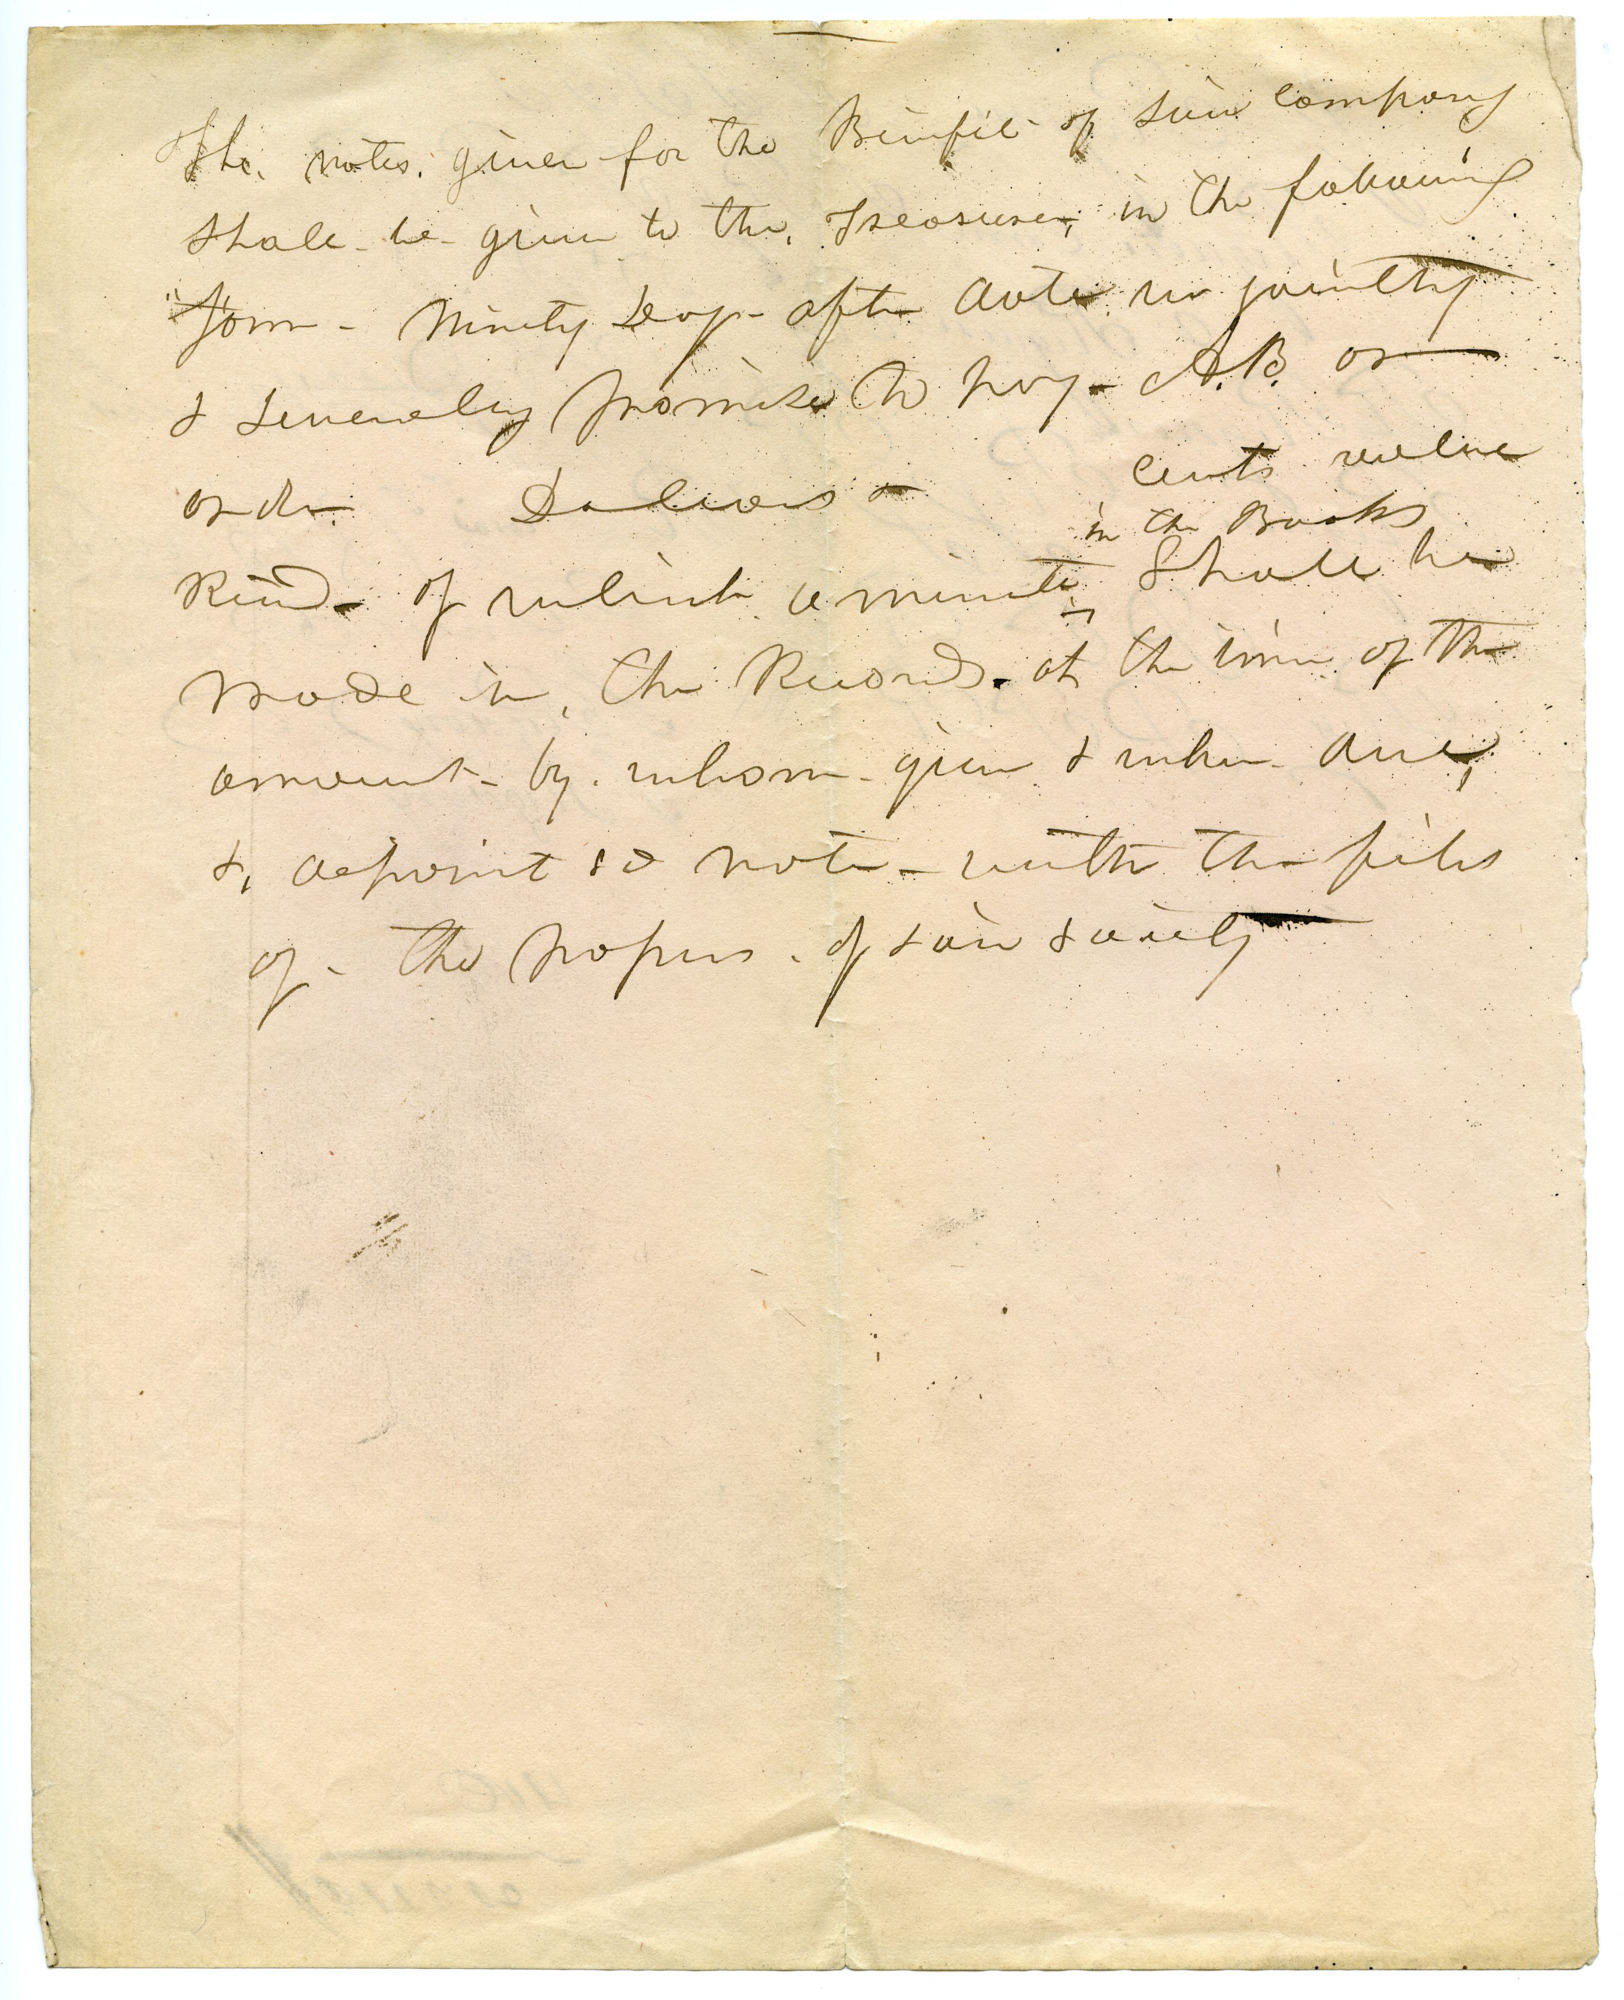 The notes given for the Benifit of said company
shall be given to the Treasurer, in the following
form - Ninety days after date we jointly
& severally promise to pay - A.B. or
order Dollars & cents value
in the Books
Recd - of which a minute shall be
made in, the Records - at the time of the
amount - by whom given & when due,
&, deposit sd note - with the files
of - the papers of said society